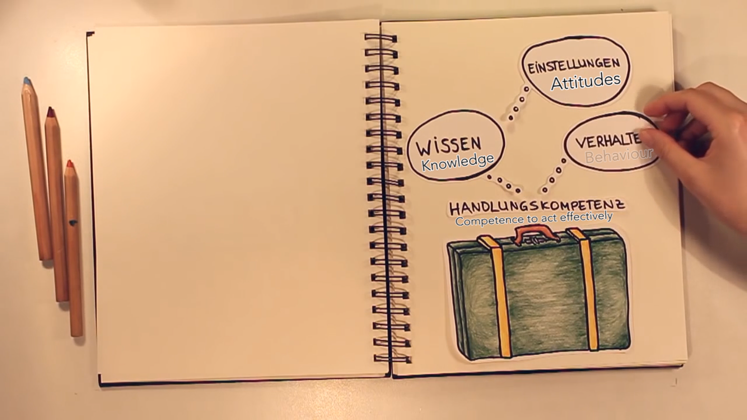 EINSTELLUNGEN
Attitudes
WISSEN
Knowledge
VERHALTE
Behaviour
HANDLUNGSKOMPETENZ
Competence to act effectively